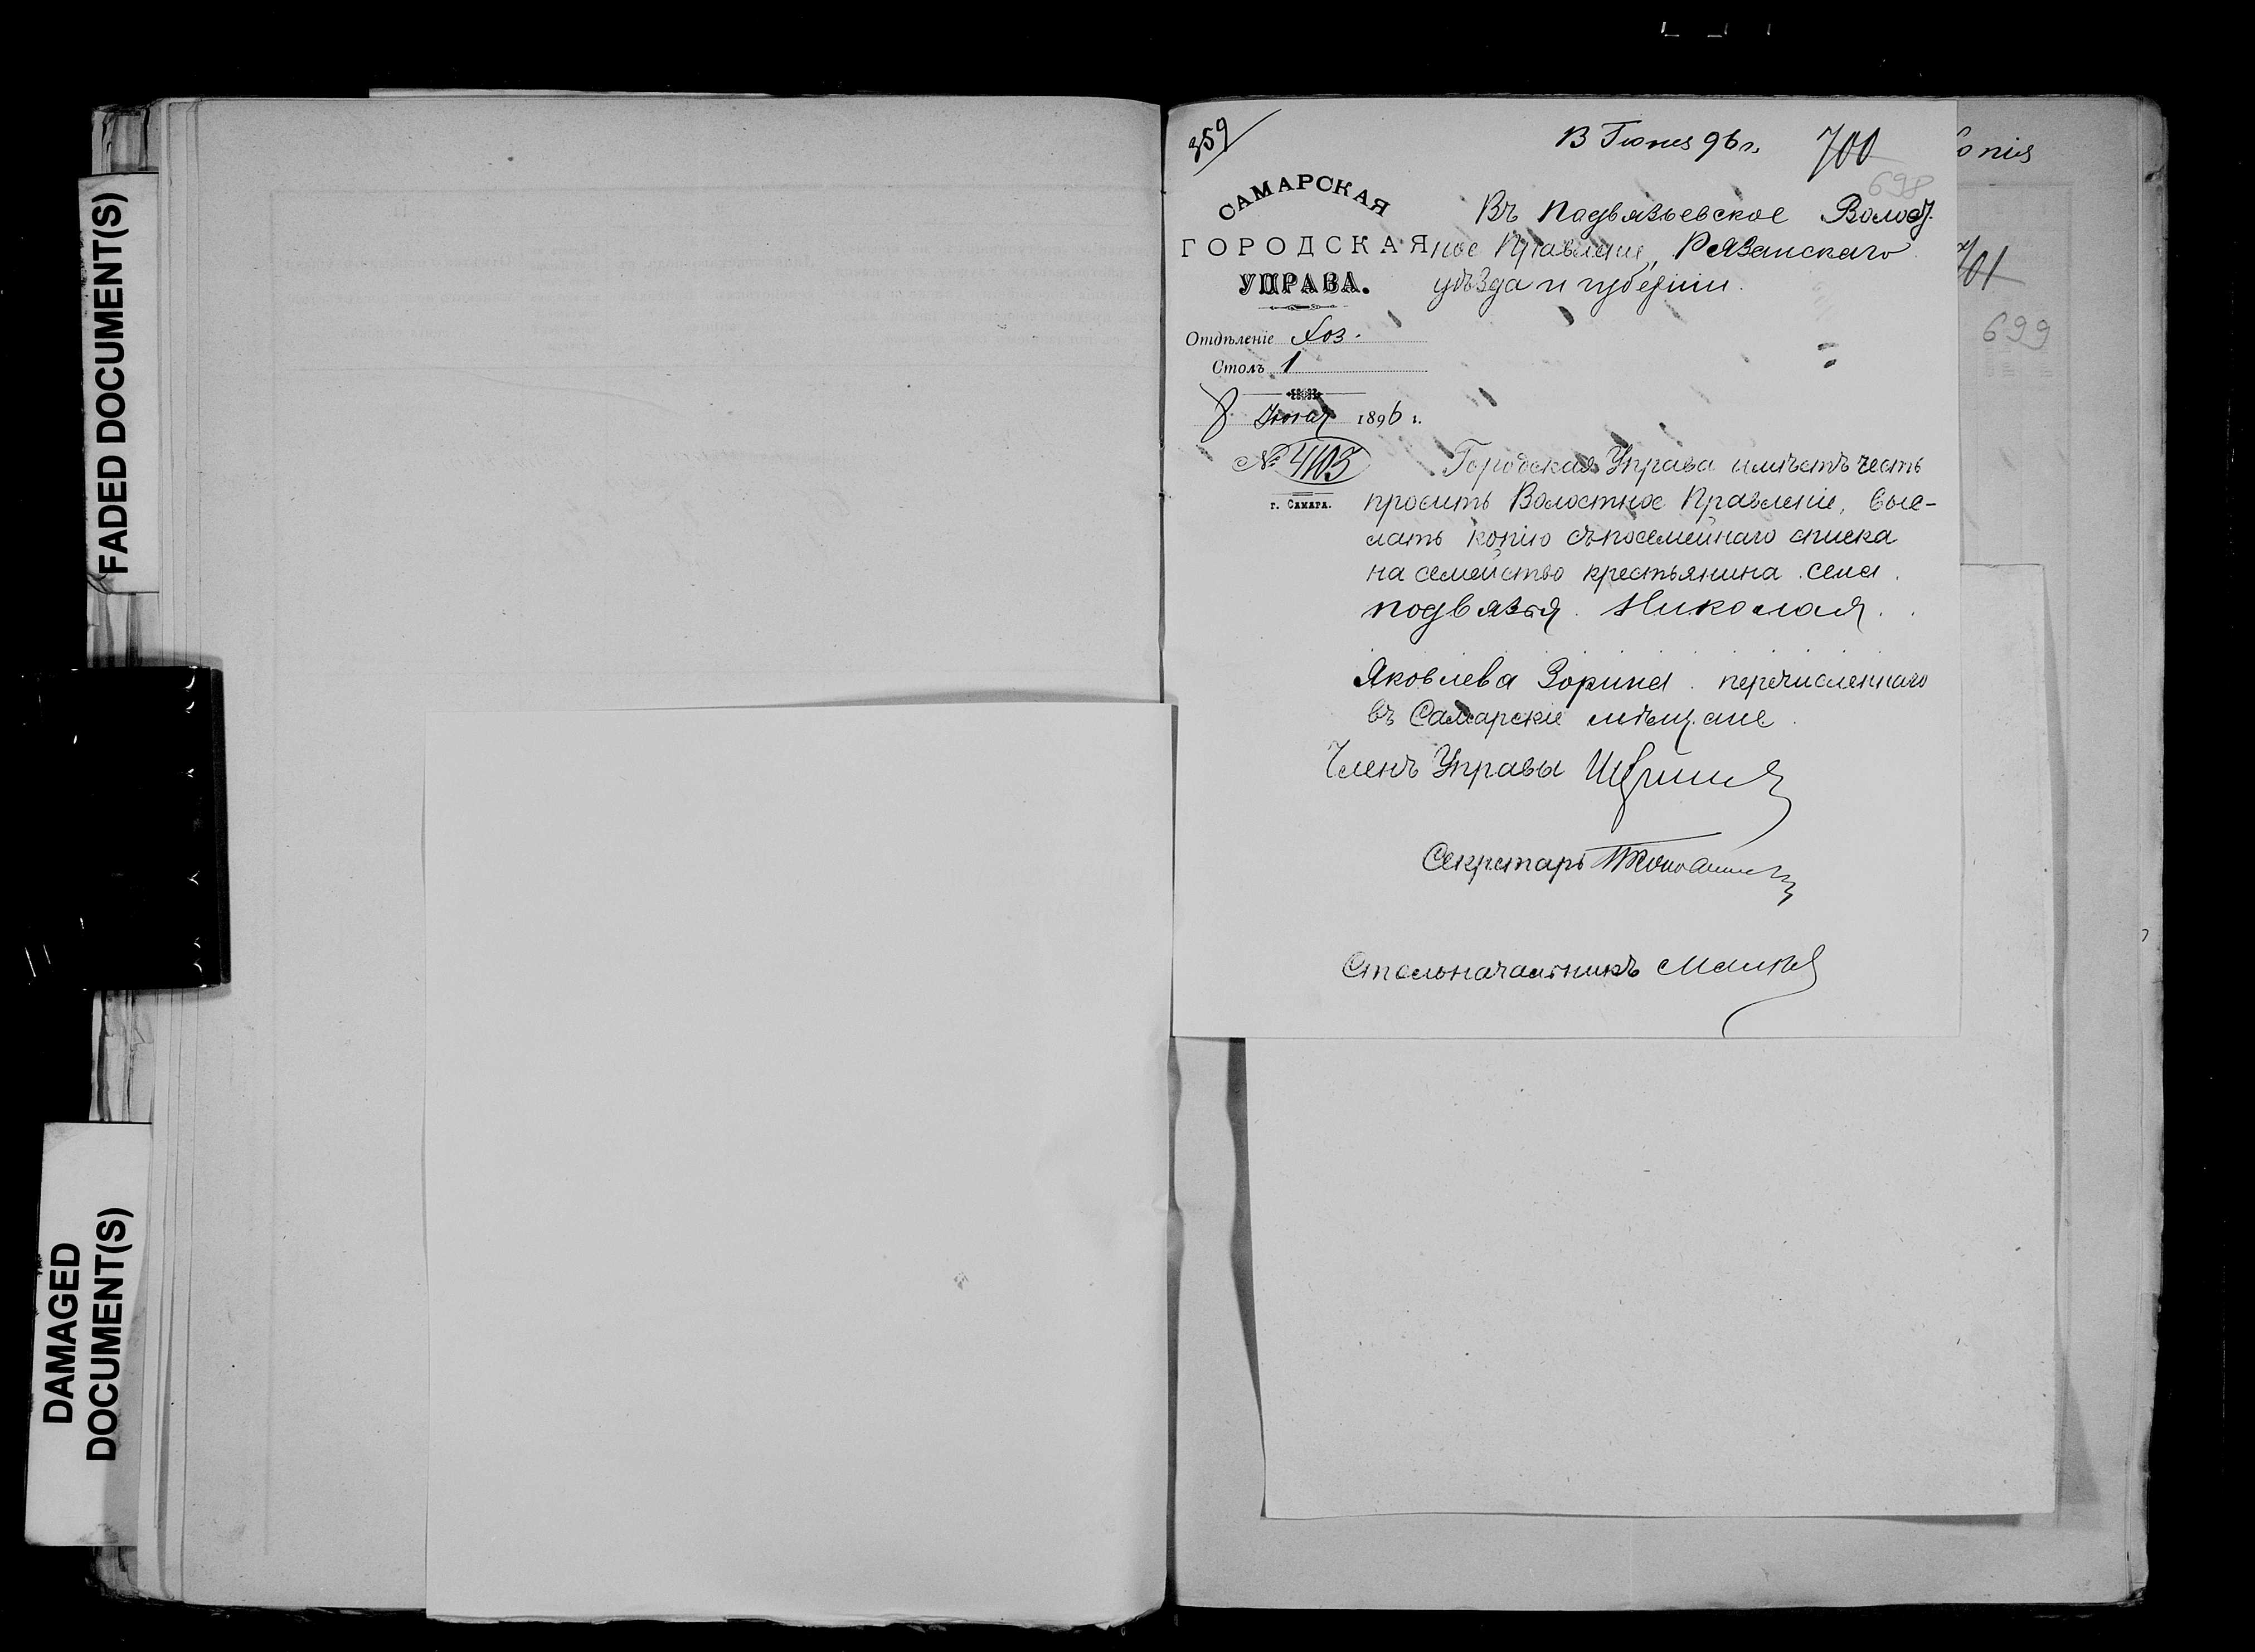 FADED DOCUMENT(S)
DAMAGED
DOCUMENT(S)
359
13 Іюня 96 г.
700
698
САМАРСКАЯ
ГОРОДСКАЯ
УПРАВА.
Отдѣленіе Хоз.
Столъ 1
8 Іюня 1896 г.
№ 4103
г. САМАРА.
Въ Подвязьевское Волост
ное Правленіе, Рязанскаго
уѣзда и губерніи.
Городская Управа имѣетъ честь
просить Волостное Правленіе, выс-
лать копію съ посемейнаго списка
на семейство крестьянина села
Подвязья Николая
Яковлева Зорина перечисленнаго
въ Самарскіе мѣщане
Членъ Управы
Секретарь
Столоначальникъ
701
699